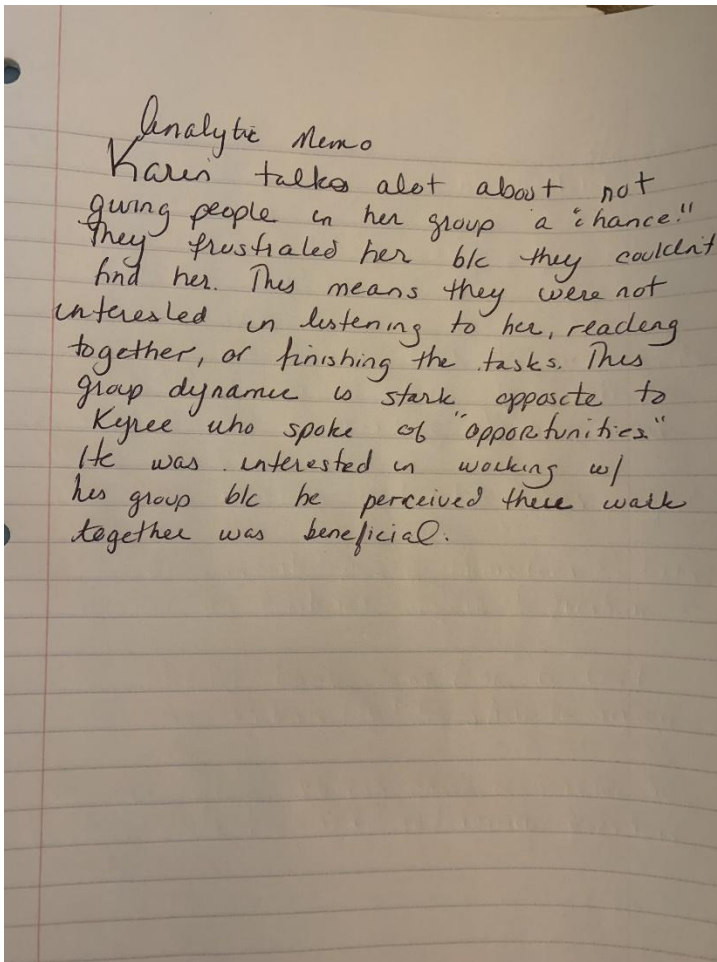 Analytic Memo
Karen talks alot about not
giving people in her group a "chance."
They frustrated her b/c they couldn't
find her. This means they were not
interested in listening to her, reading
together, or finishing the tasks. This
group dynamic is stark opposite to
Kyree who spoke of "opportunities."
He was interested in working w/
his group b/c he perceived there
together was beneficial.